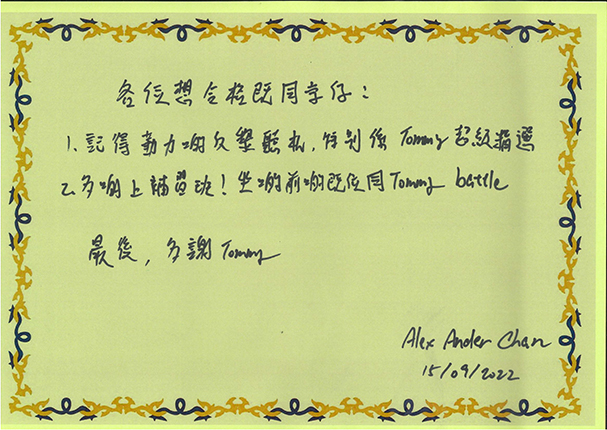 各位想合格既同学仔：
1. 記得勤力啲操聽私, 特別係 Tommy 超級精選
2. 多啲上補習班！坐啲前啲既位同 Tommy battle
最後, 多謝 Tommy
Alex Ander Chan
15/09/2022